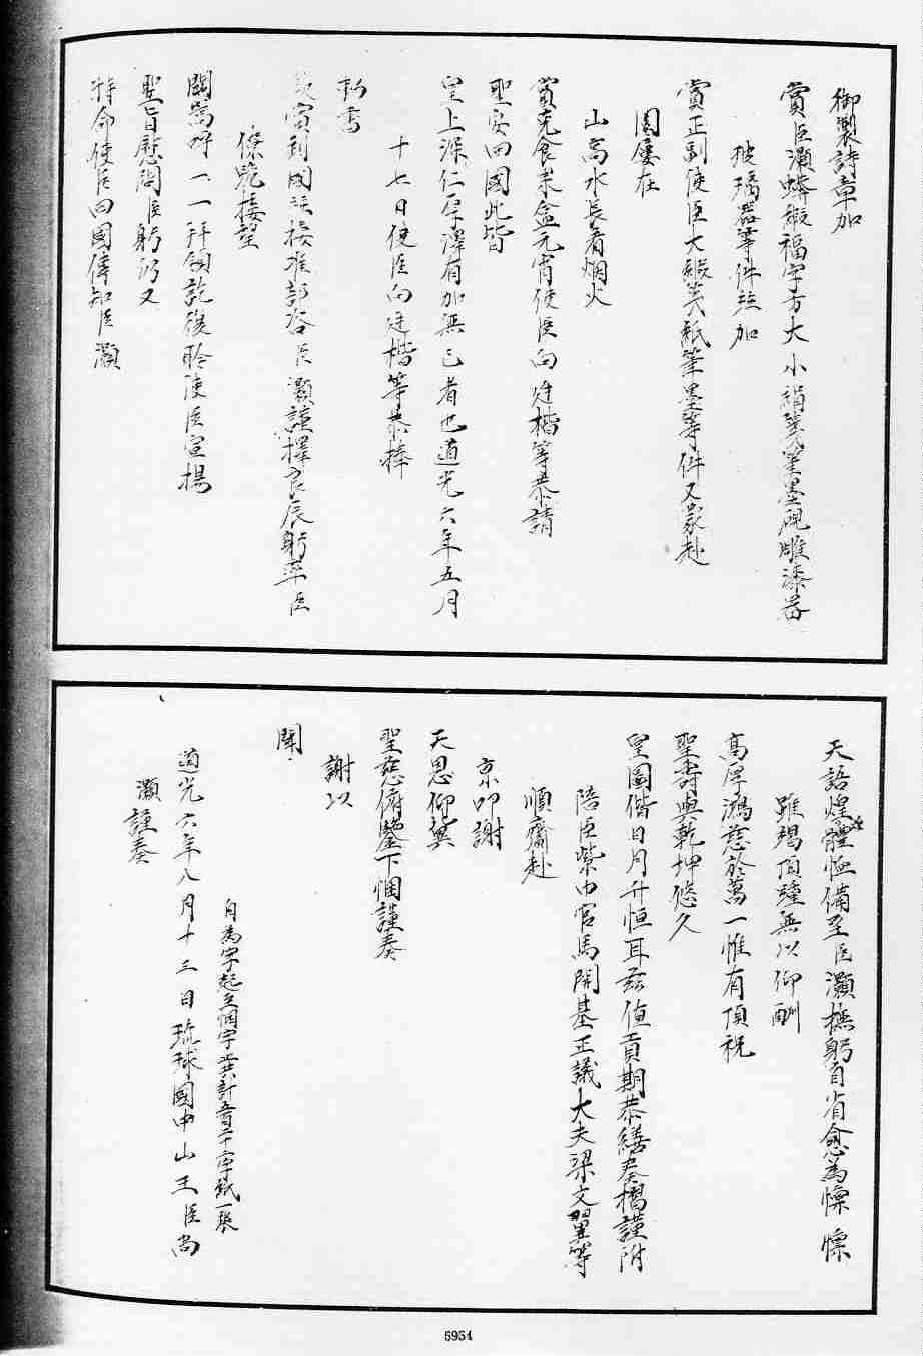 御製詩章加
賞臣灝蟒緞福字方大小絹箋筆墨硯雕漆器
玻璃器等件並加
賞正副使臣大緞箋紙筆墨等件又蒙赴
園屢在
山高水長看烟火
賞克食菓盒元宵使臣向廷楷等恭請
聖安回國此皆
皇上深仁厚澤有加無已者也道光六年五月
十七日使臣向廷楷等恭捧
勅書
賞到國接准部咨臣灝謹擇良辰躬率臣
僚跪接望
闕嵩呼一一拜領訖後聆使臣宣揚
聖旨慰問臣躬仍又
特命使臣回國俾知臣灝
天語煌煌體恤備至臣灝撫躬自省愈為懍懍
雖竭頂踵無以仰酬
高厚鴻慈於萬一惟有頂祝
聖壽與乾坤悠久
皇圖偕日月升恒耳茲值貢期恭繕奏摺謹附
陪臣紫巾官馬開基正議大夫梁文翼等
順齎赴
京叩謝
天恩仰冀
聖慈俯鑒下悃謹奏
謝以
聞
自為字起至悃字共計字紙一張
道光六年八月十三日琉球國中山王臣尚
灝謹奏
5954